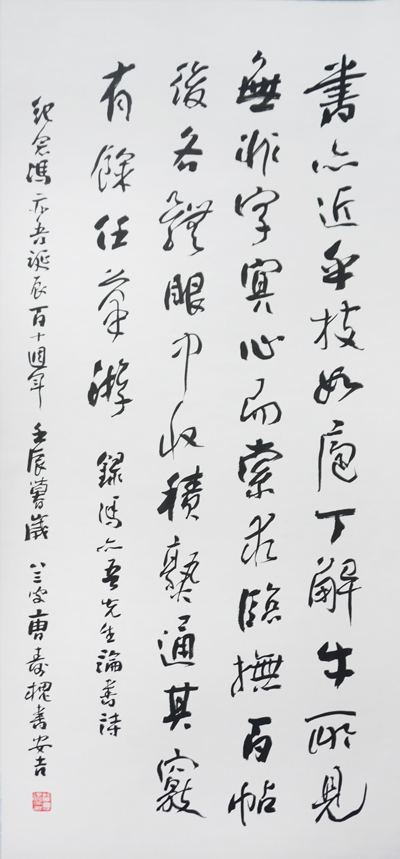 書亦近乎技如庖丁解牛所見
無非字寞心而索求臨撫百帖
後各體眼中收積藝通其竅
有餘任筆游
錄馮亦吾先生論書詩
紀念馮亦吾誕辰百十週年 壬辰暮歲 八三叟曹壽槐書安吉